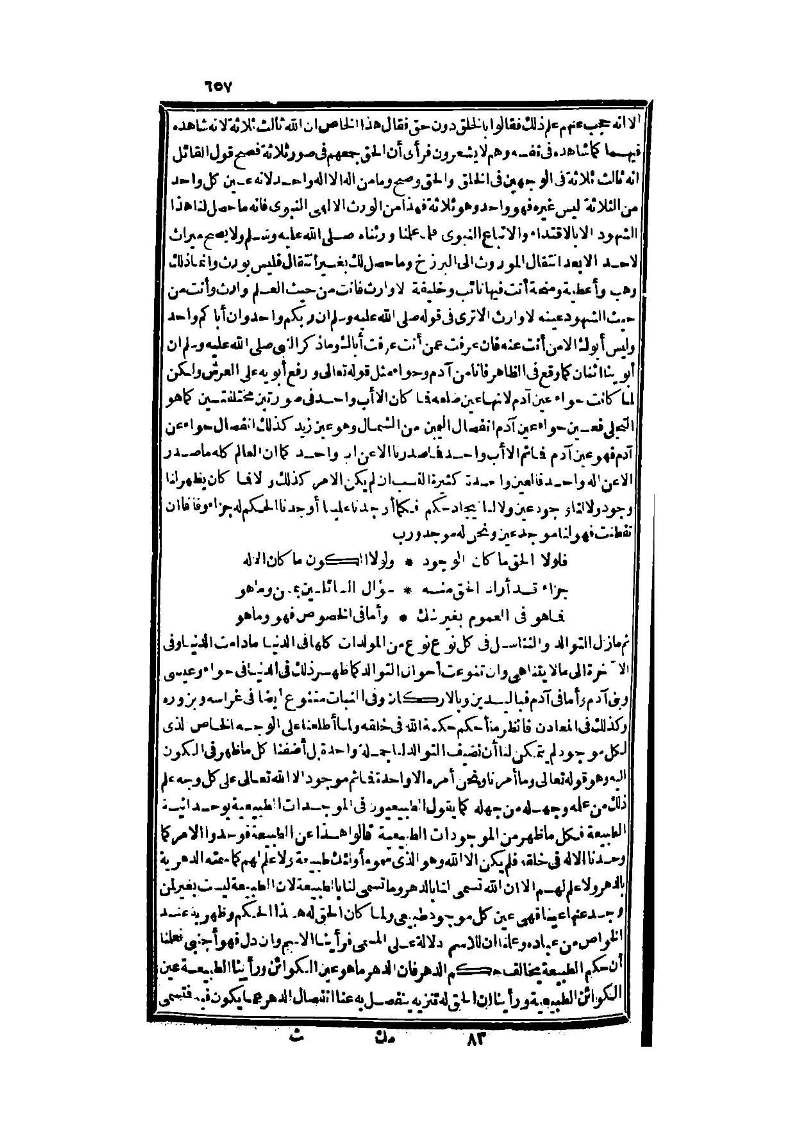 ٦٥٧
الا انه حجب عنهم علم ذلك فقالوا بالخلق دون حق فقال هذا الخاص ان الله ثالث ثلاثة لانه شاهده
فيهما كما شاهده فى نفسه وهم لا يشعرون فرأى أن الحق جمعهم فى صور ثلاثة فصح قول القائل
انه ثالث ثلاثة فى الوجهين فى الخلق والحق وصح وما من اله الا اله واحد لانه عين كل واحد
من الثلاثة ليس غيره فهو واحد وهو ثلاثة فهذا من الورث الالهى النبوى فانه ما حصل لنا هذا
الشهود الا بالاقتداء والاتباع النبوى فلما علمنا ورثناه صلى الله عليه وسلم ولا يصح ميراث
لاحد الا بعد انتقال الموروث الى البرزخ وما حصل لك بغير انتقال فليس بورث وانما ذلك
وهب وأعطية ومنحة أنت فيها نائب وخليفة لا وارث فانت من حيث العلم وارث وأنت من
حيث الشهود عينه لا وارث الا ترى فى قوله صلى الله عليه وسلم ان ربكم واحد وان أباكم واحد
وليس أبوك الا من أنت عنه فان عرفت عمن أنت عرفت أباك وما ذكر النبى صلى الله عليه وسلم ان
أبوينا اثنان كما وقع فى الظاهر فانا من آدم وحواء مثل قوله تعالى ورفع أبويه على العرش ولكن
لما كانت حواء عين آدم لانها عين ضلعه فما كان الا أب واحد فى صورتين مختلفتين كما هو
التجلى فعين حواء عين آدم انفصال اليمين من الشمال وهو عين زيد كذلك انفصال حواء عن
آدم فهو عين آدم فما ثم الا أب واحد فما صدرنا الا عن أب واحد كما ان العالم كله ما صدر
الا عن اله واحد فالعين واحدة كثيرة النسب ان لم يكن الامر كذلك والا فما كان يظهر لنا
وجود ولا لنا وجود عين ولا لنا ايجاد حكم فكما أوجدنا عليا أوجدنا الحكم له جزاء وفاقا فان
تفطنت فهو لنا موجد عين ونحن له موجد ورب
فلولا الحق ما كان الوجود * ولولا الكون ما كان الاله
جزاء قد أراد الحق منه * سؤال السائلين بمن وما هو
فما هو فى العموم بغير شك * وأما فى الخصوص فهو وما هو
ثم ما زال التوالد والتناسل فى كل نوع نوع من المولدات كلها فى الدنيا ما دامت الدنيا وفى
الآخرة الى ما لا يتناهى وان تنوعت أحوال التوالد كما ظهر ذلك فى الدنيا فى حواء وعيسى
وفى آدم وأما فى آدم فباليدين وبالاركان وفى النبات متنوع أيضا فى غراسه وبزوره
وكذلك فى المعادن فانظر ما أحكم حكمة الله فى خلقه ولما أطلعنا على الوجه الخاص لذى
لكل موجود لم يتمكن لنا أن نضيف التوالد لنا جملة واحدة بل أضفنا كل ما ظهر فى الكون
اليه وهو قوله تعالى وما أمرنا ونحن أمره الا واحدة فما ثم موجود الا الله تعالى على كل وجه علم
ذلك من علمه وجهله من جهله كما يقول الطبيعيون فى الموجدات الطبيعية بوحدانية
الطبيعة فكل ما ظهر من الموجودات الطبيعية قالوا هذا عن الطبيعة فوحدوا الامر كما
وحدنا الاله فى خلقه فلم يكن الا الله وهو الذى سموه أولئك طبيعة ولا علم لهم كما سمته الدهرية
بالدهر ولا علم لهم الا ان الله تسمى لنا بالدهر وما تسمى لنا بالطبيعة لان الطبيعة ليست بغير لمن
وجد عنها عينا فهى عين كل موجود طبيعى ولما كان الحق له هذا الحكم وظهر به عند
الخواص من عباده وعلمنا ان للاسم دلالة على المسمى فرأينا الاسم وان دل فهو أجنبى فعلمنا
أن حكم الطبيعة يخالف حكم الدهر فان الدهر ما هو عين الكوائن ورأينا الطبيعة عين
الكوائن الطبيعية ورأينا ان الحق له تنزيه ينفصل به عنا انفصال الدهر عما يكون فيه فتسمى
٨٣ مك ث